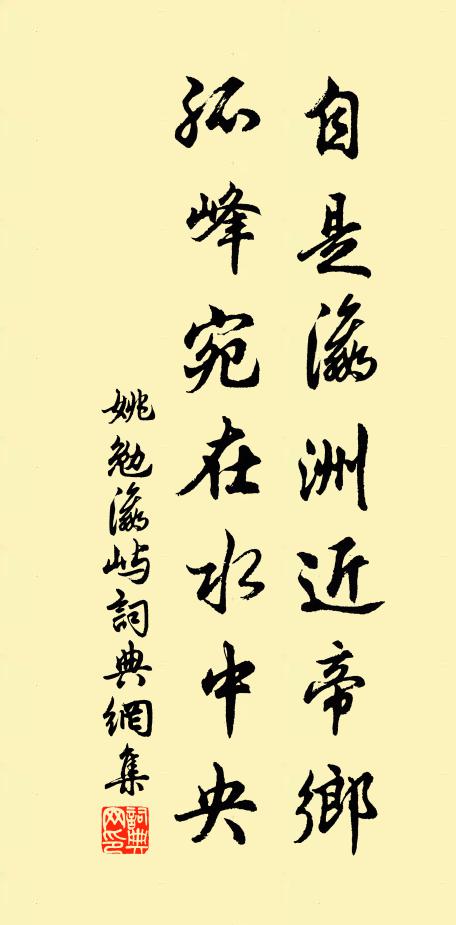 自是瀛洲近帝鄉
孤峰宛在水中央
姚勉瀛屿詞典網集
詞典網印